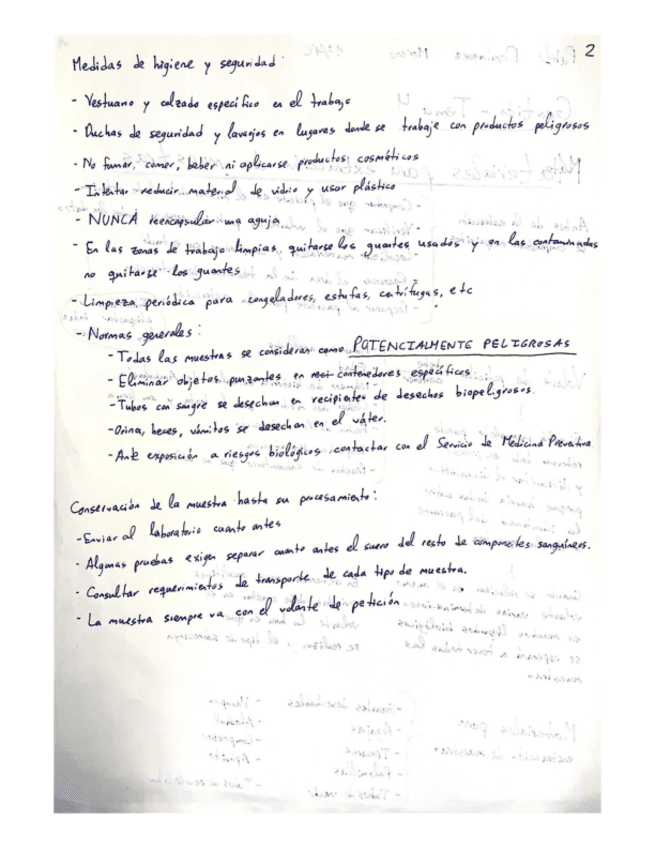 2
Medidas de higiene y seguridad:
- Vestuario y calzado específico en el trabajo
- Duchas de seguridad y lavaojos en lugares donde se trabaje con productos peligrosos
- No fumar, comer, beber ni aplicarse productos cosméticos
- Intentar reducir material de vidrio y usar plástico
- NUNCA reencapsular una aguja
- En las zonas de trabajo limpias, quitarse los guantes usados y en las contaminadas
no quitarse los guantes
- Limpieza periódica para congeladores, estufas, centrífugas, etc
- Normas generales:
- Todas las muestras se consideran como POTENCIALMENTE PELIGROSAS
- Eliminar objetos punzantes en reci contenedores específicos
- Tubos con sangre se desechan en recipientes de desechos biopeligrosos.
- Orina, heces, vómitos se desechan en el váter.
- Ante exposición a riesgos biológicos contactar con el Servicio de Medicina Preventiva
Conservación de la muestra hasta su procesamiento:
- Enviar al laboratorio cuanto antes
- Algunas pruebas exigen separar cuanto antes el suero del resto de componentes sanguíneos.
- Consultar requerimientos de transporte de cada tipo de muestra.
- La muestra siempre va con el volante de petición